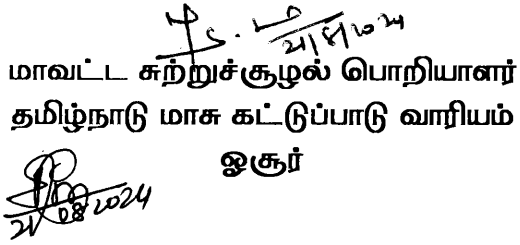 21/8/2024
மாவட்ட சுற்றுச்சூழல் பொறியாளர்
தமிழ்நாடு மாசு கட்டுப்பாடு வாரியம்
ஓசூர்
21/08/2024